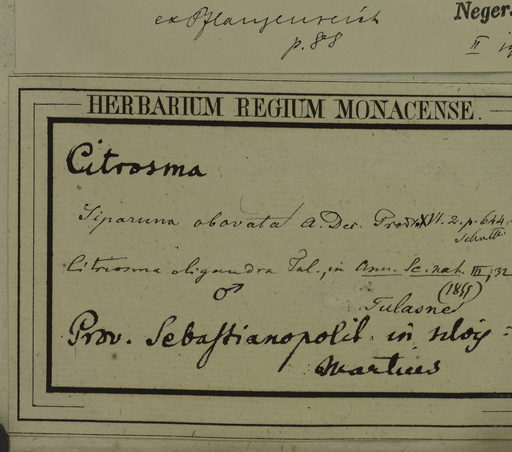 ex Pflanzenreich
p. 88
Neger
II
HERBARIUM REGIUM MONACENSE.
Citrosma
Siparuna obovata A. Dec. Prodr. XVI. 2. p. 644
Citriosma oligandra Tul., in Ann. Sc. nat. III, 32
(1855)
♂
Tulasne
Prov. Sebastianopolit. in silvis
Martius